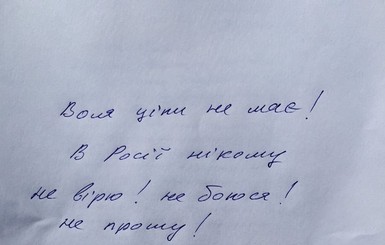 Воля ціни не має!
В Росії нікому
не вірю! не боюся!
не прошу!